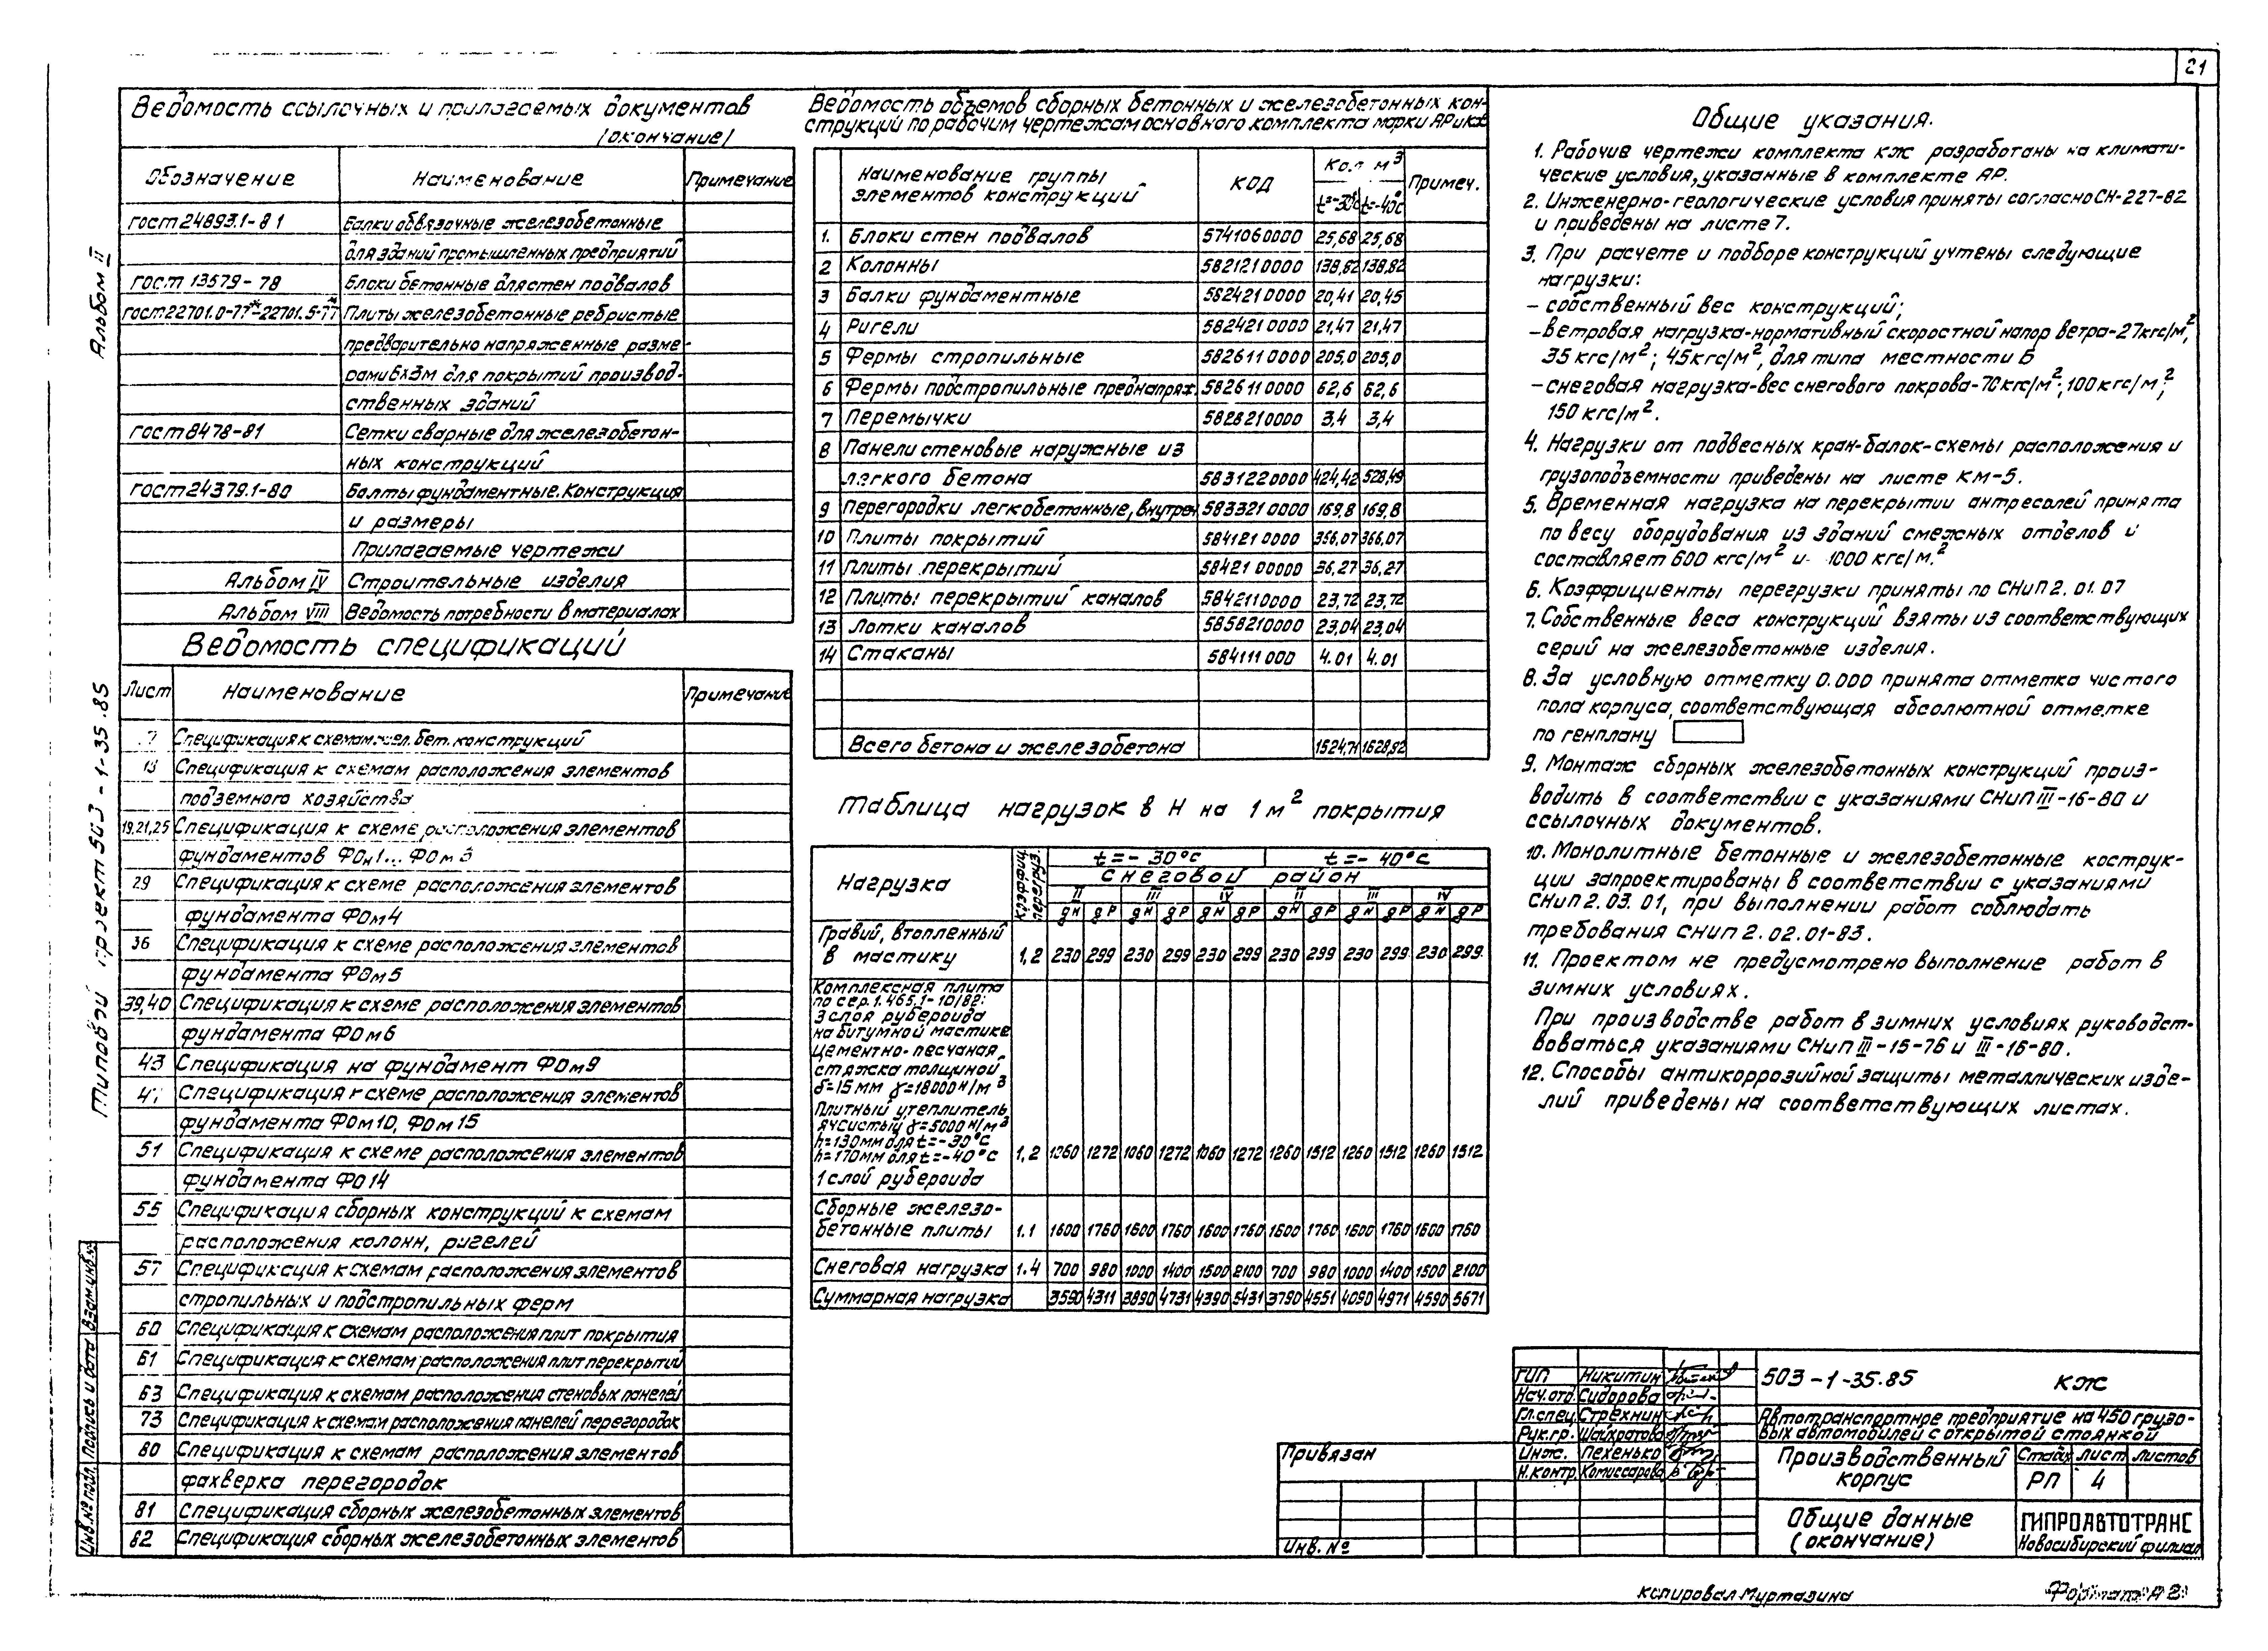 21
Альбом II
Типовой проект 503-1-35.85
Ведомость ссылочных и прилагаемых документов
(окончание)
Обозначение Наименование Примечание
гост 24893.1-81 Балки обвязочные железобетонные
для зданий промышленных предприятий
гост 13579-78 Блоки бетонные для стен подвалов
гост 22701.0-77*-22701.5-77* Плиты железобетонные ребристые
предварительно напряженные разме-
рами 6х3м для покрытий производ-
ственных зданий
гост 8478-81 Сетки сварные для железобетон-
ных конструкций
гост 24379.1-80 Болты фундаментные. Конструкция
и размеры
Прилагаемые чертежи
Альбом IV Строительные изделия
Альбом VIII Ведомость потребности в материалах
Ведомость спецификаций
Лист Наименование Примечание
Спецификация к схемам жел. бет. конструкций
Спецификация к схемам расположения элементов
подземного хозяйства
19,21,25 Спецификация к схеме расположения элементов
фундаментов ФОм1... ФОм3
29 Спецификация к схеме расположения элементов
фундамента ФОм4
36 Спецификация к схеме расположения элементов
фундамента ФОм5
39,40 Спецификация к схеме расположения элементов
фундамента ФОм6
43 Спецификация на фундамент ФОм9
Спецификация к схеме расположения элементов
фундамента ФОм10, ФОм15
51 Спецификация к схеме расположения элементов
фундамента ФО14
55 Спецификация сборных конструкций к схемам
расположения колонн, ригелей
57 Спецификация к схемам расположения элементов
стропильных и подстропильных ферм
60 Спецификация к схемам расположения плит покрытия
61 Спецификация к схемам расположения плит перекрытий
63 Спецификация к схемам расположения стеновых панелей
73 Спецификация к схемам расположения панелей перегородок
80 Спецификация к схемам расположения элементов
фахверка перегородок
81 Спецификация сборных железобетонных элементов
82 Спецификация сборных железобетонных элементов
Инв.№ подл. Подпись и дата Взам.инв.№
Ведомость объемов сборных бетонных и железобетонных кон-
струкций по рабочим чертежам основного комплекта марки АР и КЖ
Наименование группы элементов конструкций КОД Кол м³ Примеч.
t=-30°с t=-40°с
1. Блоки стен подвалов 5741060000 25,68 25,68
2 Колонны 5821210000 138,82 138,82
3 Балки фундаментные 5824210000 20,41 20,45
4 Ригели 5824210000 21,47 21,47
5 Фермы стропильные 5826110000 205,0 205,0
6 Фермы подстропильные преднапряж. 5826110000 62,6 62,6
7 Перемычки 5828210000 3,4 3,4
8 Панели стеновые наружные из
легкого бетона 5831220000 424,42 528,49
9 Перегородки легкобетонные, внутрен 5833210000 169,8 169,8
10 Плиты покрытий 5841210000 366,07 366,07
11 Плиты перекрытий 5842100000 36,27 36,27
12 Плиты перекрытий каналов 5842110000 23,72 23,72
13 Лотки каналов 5858210000 23,04 23,04
14 Стаканы 584111000 4.01 4.01
Всего бетона и железобетона 1524,71 1628,82
Таблица нагрузок в Н на 1 м² покрытия
Нагрузка Коэффиц. перегруз. t=-30°с t=-40°с
снеговой район
II III IV II III IV
gн gр gн gр gн gр gн gр gн gр gн gр
Гравий, втопленный
в мастику 1,2 230 299 230 299 230 299 230 299 230 299 230 299
Комплексная плита
по сер.1.465.1-10/82:
3 слоя рубероида
на битумной мастике
цементно-песчаная
стяжка толщиной
δ=15мм γ=18000н/м³
Плитный утеплитель
ячеистый γ=5000н/м³
h=130мм для t=-30°с
h=170мм для t=-40°с 1,2 1060 1272 1060 1272 1060 1272 1260 1512 1260 1512 1260 1512
1 слой рубероида
Сборные железо-
бетонные плиты 1.1 1600 1760 1600 1760 1600 1760 1600 1760 1600 1760 1600 1760
Снеговая нагрузка 1.4 700 980 1000 1400 1500 2100 700 980 1000 1400 1500 2100
Суммарная нагрузка 3590 4311 3890 4731 4390 5431 3790 4551 4090 4971 4590 5671
Общие указания.
1. Рабочие чертежи комплекта КЖ разработаны на климати-
ческие условия, указанные в комплекте АР.
2. Инженерно-геологические условия приняты согласно СН-227-82
и приведены на листе 7.
3. При расчете и подборе конструкций учтены следующие
нагрузки:
- собственный вес конструкций;
- ветровая нагрузка-нормативный скоростной напор ветра-27кгс/м²,
35 кгс/м²; 45кгс/м², для типа местности Б
- снеговая нагрузка-вес снегового покрова-70кгс/м²; 100кгс/м²;
150 кгс/м².
4. Нагрузки от подвесных кран-балок-схемы расположения и
грузоподъемности приведены на листе КМ-5.
5. Временная нагрузка на перекрытии антресолей принята
по весу оборудования из зданий смежных отделов и
составляет 600 кгс/м² и 1000 кгс/м.²
6. Коэффициенты перегрузки приняты по СНиП 2.01.07
7. Собственные веса конструкций взяты из соответствующих
серий на железобетонные изделия.
8. За условную отметку 0.000 принята отметка чистого
пола корпуса, соответствующая абсолютной отметке
по генплану
9. Монтаж сборных железобетонных конструкций произ-
водить в соответствии с указаниями СНиП III-16-80 и
ссылочных документов.
10. Монолитные бетонные и железобетонные кострук-
ции запроектированы в соответствии с указаниями
СНиП 2.03.01, при выполнении работ соблюдать
требования СНиП 2.02.01-83.
11. Проектом не предусмотрено выполнение работ в
зимних условиях.
При производстве работ в зимних условиях руководст-
воваться указаниями СНиП III-15-76 и III-16-80.
12. Способы антикоррозийной защиты металлических изде-
лий приведены на соответствующих листах.
Привязан
Инв. №
ГИП Никитин
Нач.отд. Сидорова
Гл.спец. Стрехнин
Рук.гр. Шайхратова
Инж. Пехенько
Н.контр. Комиссарова
503-1-35.85 КЖ
Автотранспортное предприятие на 450 грузо-
вых автомобилей с открытой стоянкой
Производственный корпус
Стадия лист листов
РП 4
Общие данные
(окончание)
ГИПРОАВТОТРАНС
Новосибирский филиал
Копировал Муртазина
Формат А2